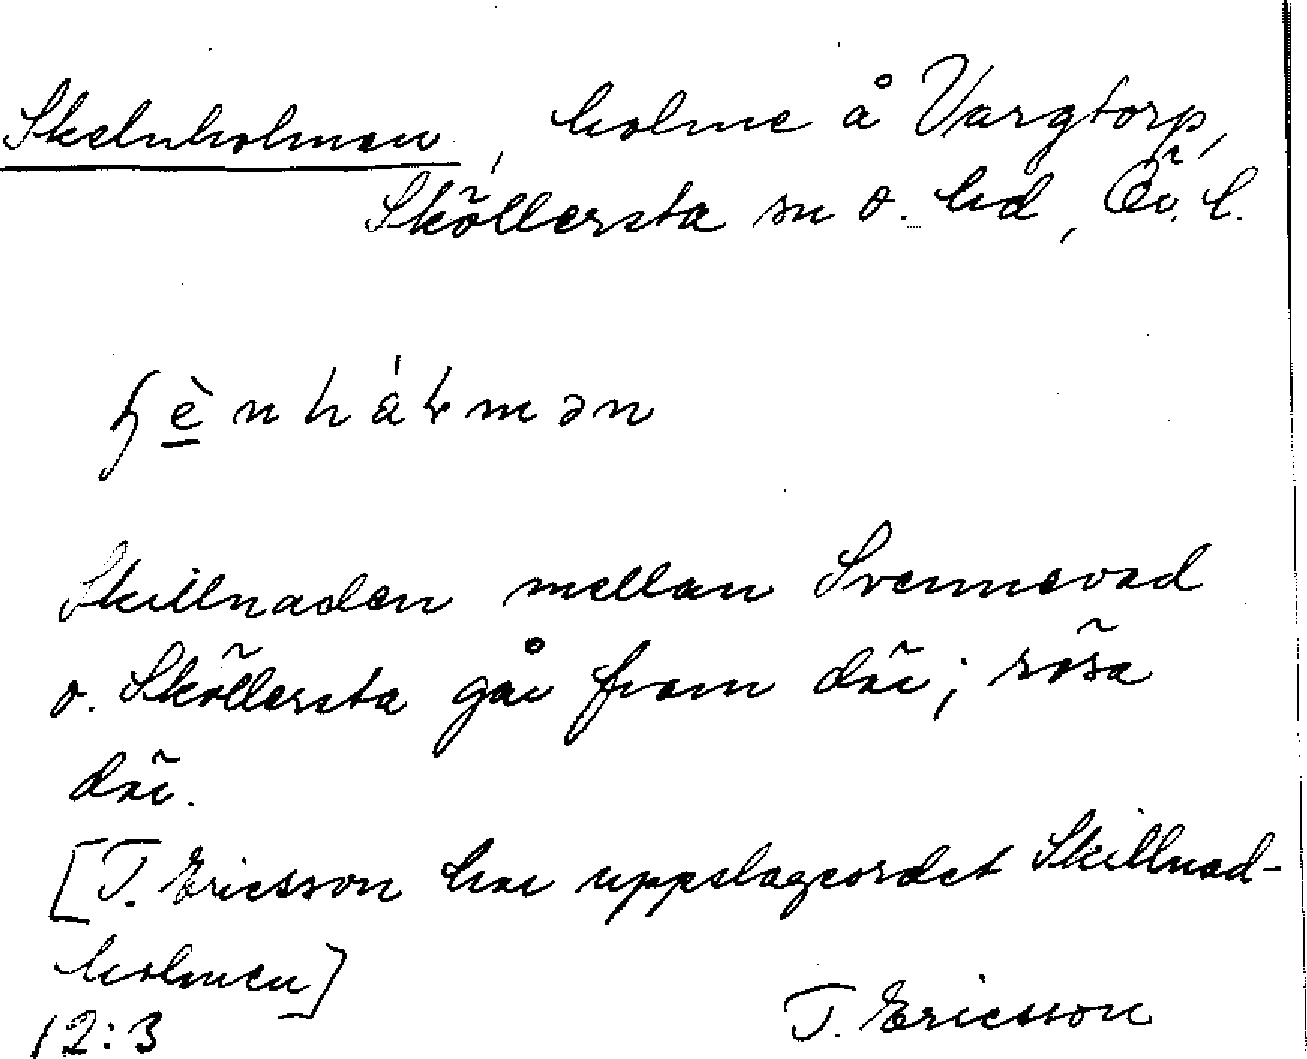 Skelnholmen, holme å Vargtorp,
Sköllersta sn o. hd, Ör. l.
ꞩènhåłmən
Skillnaden mellan Svennevad
o. Sköllersta går fram där; rösa
där.
[T. Ericsson har uppslagsordet Skillnad-
holmen]
12:3 T. Ericsson